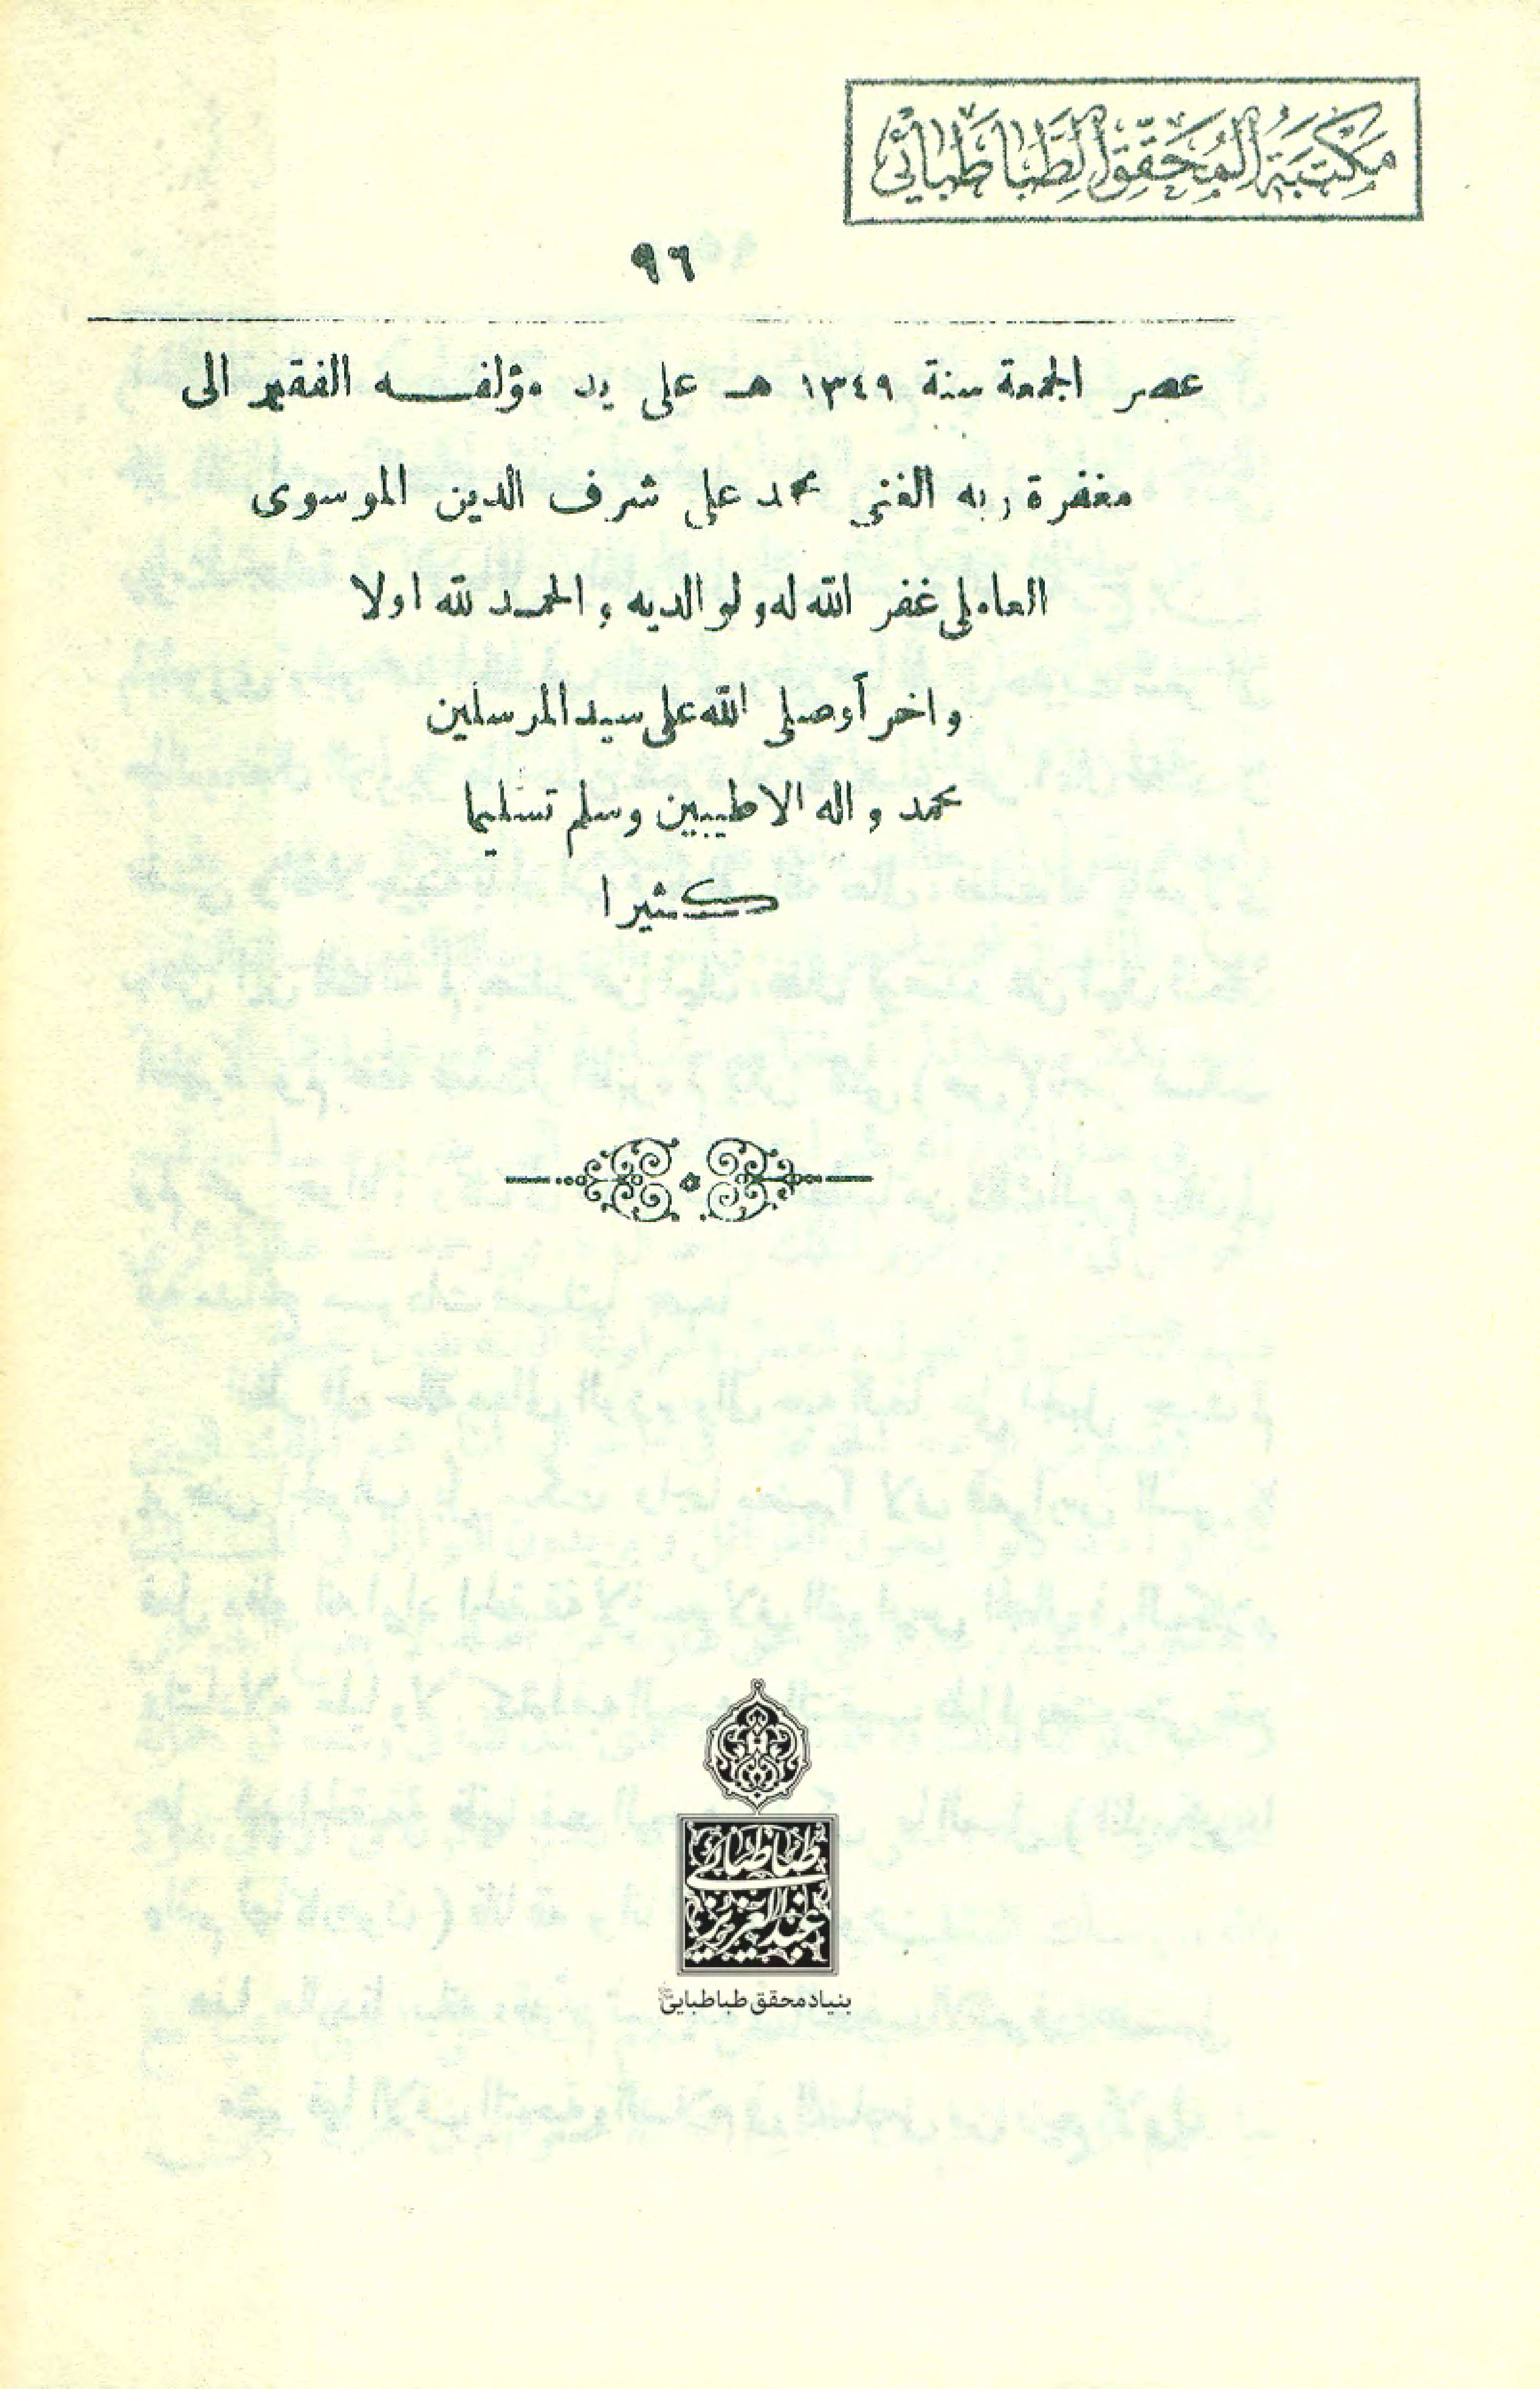 مكتبة المحقق الطباطبائي
٩٦
عصر الجمعة سنة ١٣٤٩ هـ على يد مؤلفه الفقير الى
مغفرة ربه الغني محمد علي شرف الدين الموسوى
العاملي غفر الله له ولوالديه والحمد لله اولا
واخر آوصلى الله على سيد المرسلين
محمد واله الاطيبين وسلم تسليما
كثيرا
طباطبائی
عبدالعزیز
بنیاد محقق طباطبایی